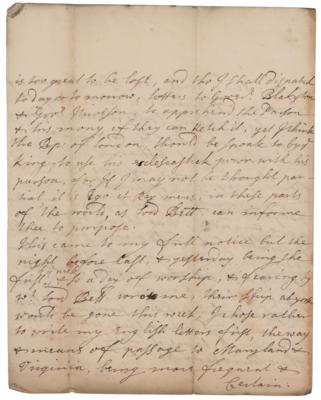 is too great to be lost, and tho I shall dispatch
to day or to morrow, letters to Gover. Blakston
& Govr. Nicolson, to apprehend the Person
& his mony if they can ketch it, yet I think
the Bp: of London should be spoak to by ye
king to use his eclesiastick power with his
person, for if I may not be thought par
tial, it is
of the world, as Lord Bell can informe
thee to purpose.
This came to my full notice but the
night before last, & yesterday being the
first week a day of worship, & fearing by
wt. Lord Bell wrote me, their ship at york
would be gone this week, I chose rather
to write my English letters first, the way
& means of passage to Maryland &
Virginia, being more frequent &
Certain.